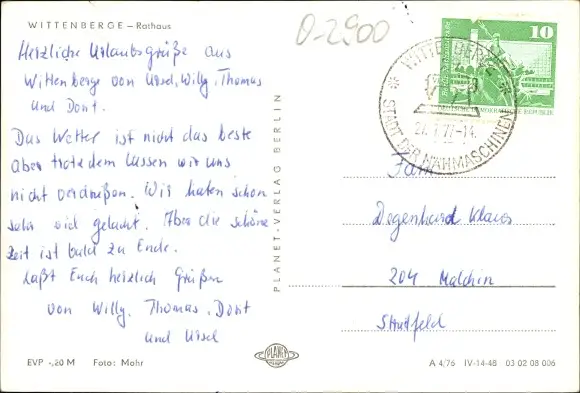 WITTENBERGE – Rathaus
0-2900
Herzliche Urlaubsgrüße aus
Wittenberge von Ursel, Willy, Thomas
und Dont.
Das Wetter ist nicht das beste
aber trotzdem lassen wir uns
nicht verdrießen. Wir haben schon
sehr viel gelacht. Aber die schöne
Zeit ist bald zu Ende.
Laßt Euch herzlich Grüßen
von Willy, Thomas, Dont
und Ursel
EVP -,20 M Foto: Mohr
PLANET-VERLAG BERLIN
PLANET
10
DEMOKRATISCHE REPUBLIK
WITTENBERGE
77-14
STADT DER NÄHMASCHINEN
Fam
Degenhard Klaus
204 Malchin
A 4/76 IV-14-48 03 02 08 006